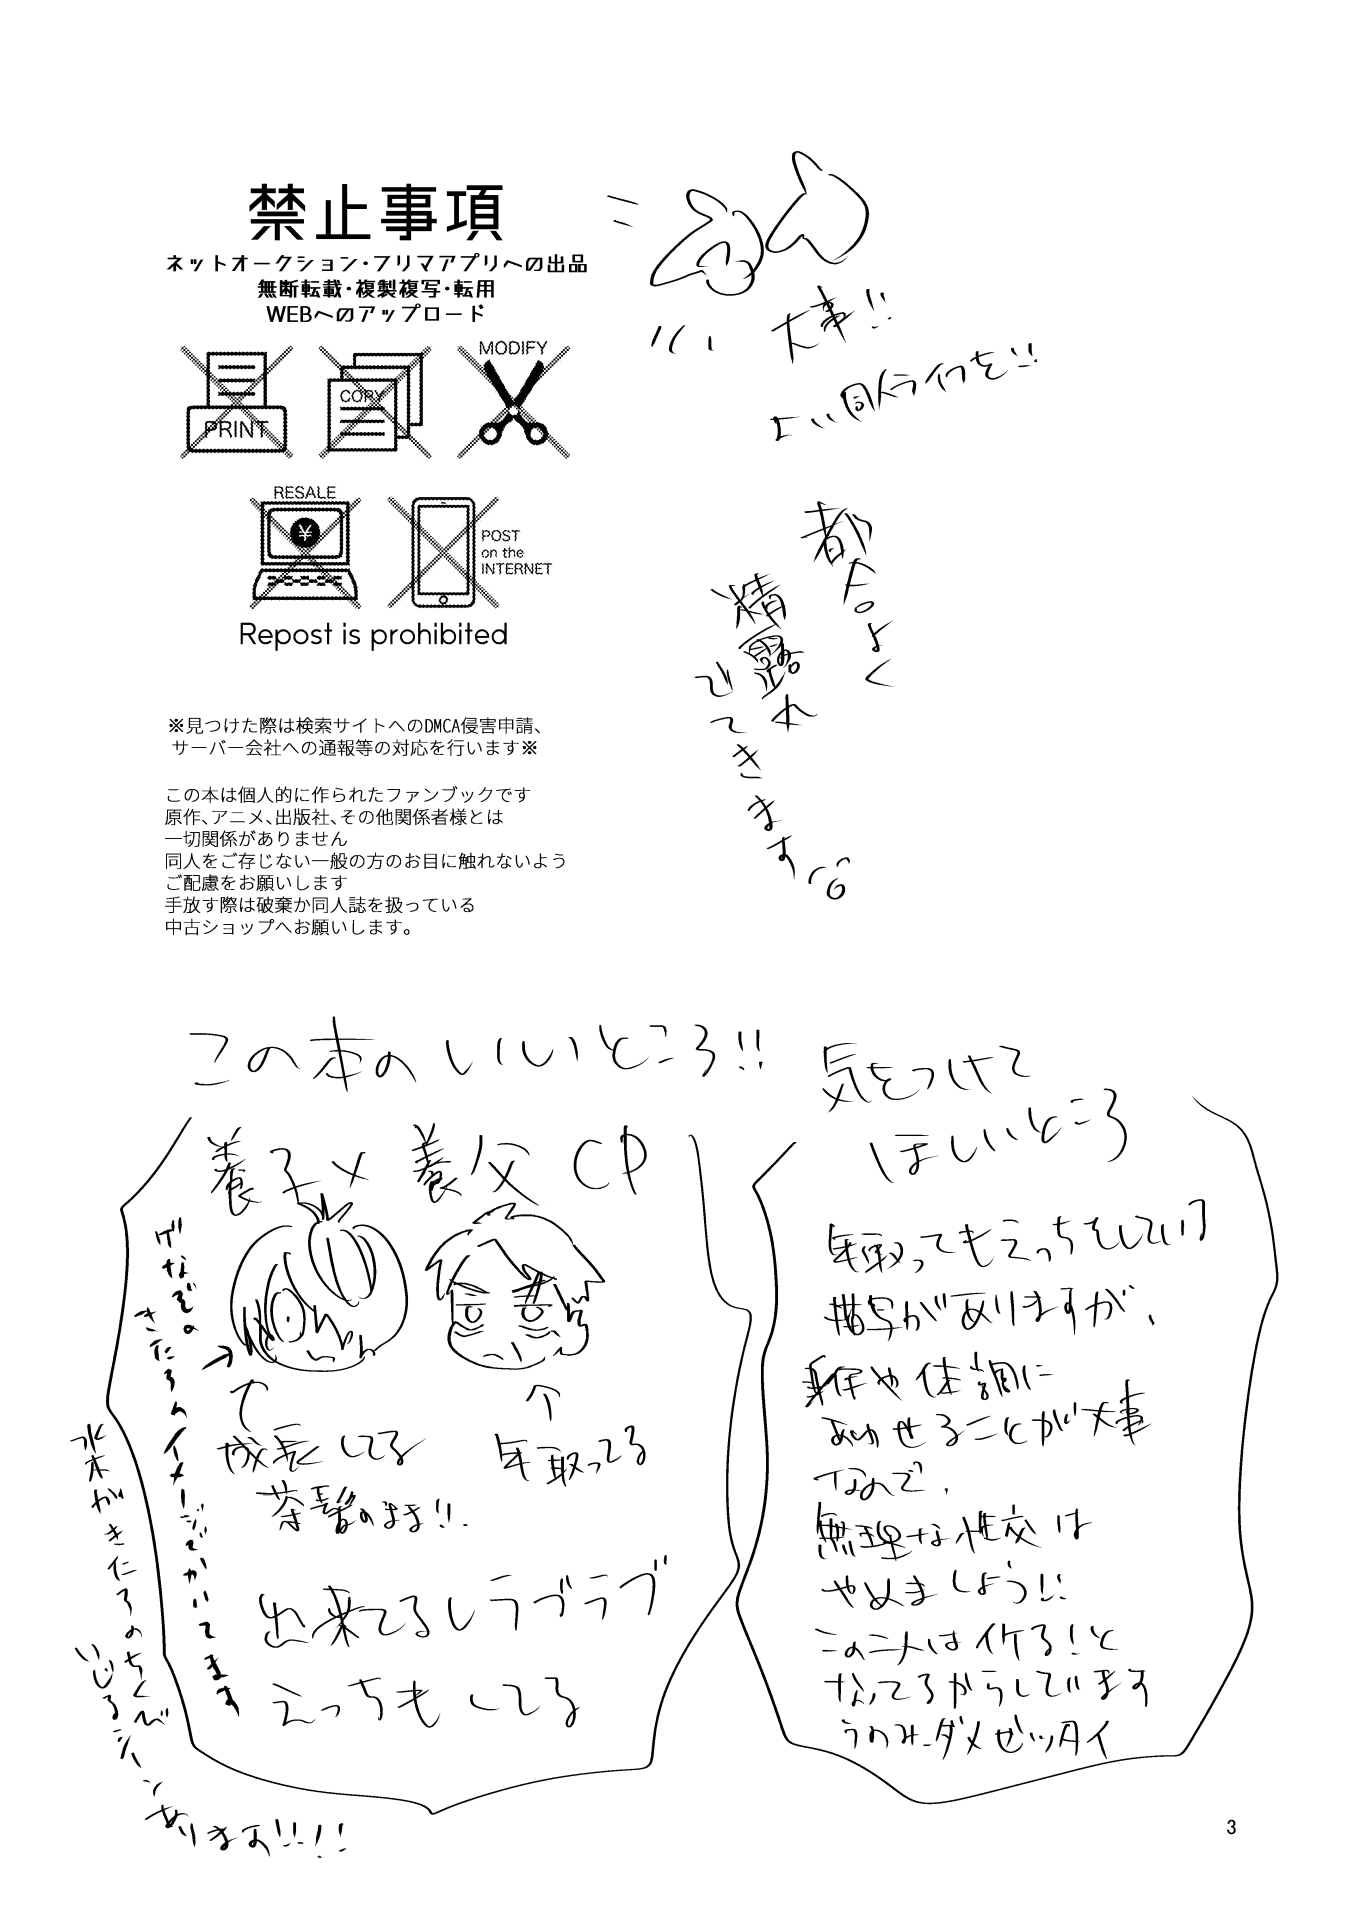 禁止事項
ネットオークション・フリマアプリへの出品
無断転載・複製複写・転用
WEBへのアップロード
PRINT
COPY
MODIFY
RESALE
¥
POST
on the
INTERNET
Repost is prohibited
※見つけた際は検索サイトへのDMCA侵害申請、
サーバー会社への通報等の対応を行います※
この本は個人的に作られたファンブックです
原作、アニメ、出版社、その他関係者様とは
一切関係がありません
同人をご存じない一般の方のお目に触れないよう
ご配慮をお願いします
手放す際は破棄か同人誌を扱っている
中古ショップへお願いします。
大事!!
よい同人ライフを!!
都合よく
精霊
でてきます
この本のいいところ!!
養子×養父CP
げなぞの
きたろのイメージでかいてます
成長してる
茶髪のまま!!
年取ってる
出来てるしラブラブ
えっちもしてる
水木がきたろのちくび
いじるシーン
あります!!!!
気をつけて
ほしいところ
年取ってもえっちをしている
描写がありますが、
身体や体調に
あわせることが大事
なので、
無理な性交は
やめましょう!!
この二人は行ける!と
なってるからしています
うのみ ダメゼッタイ
3